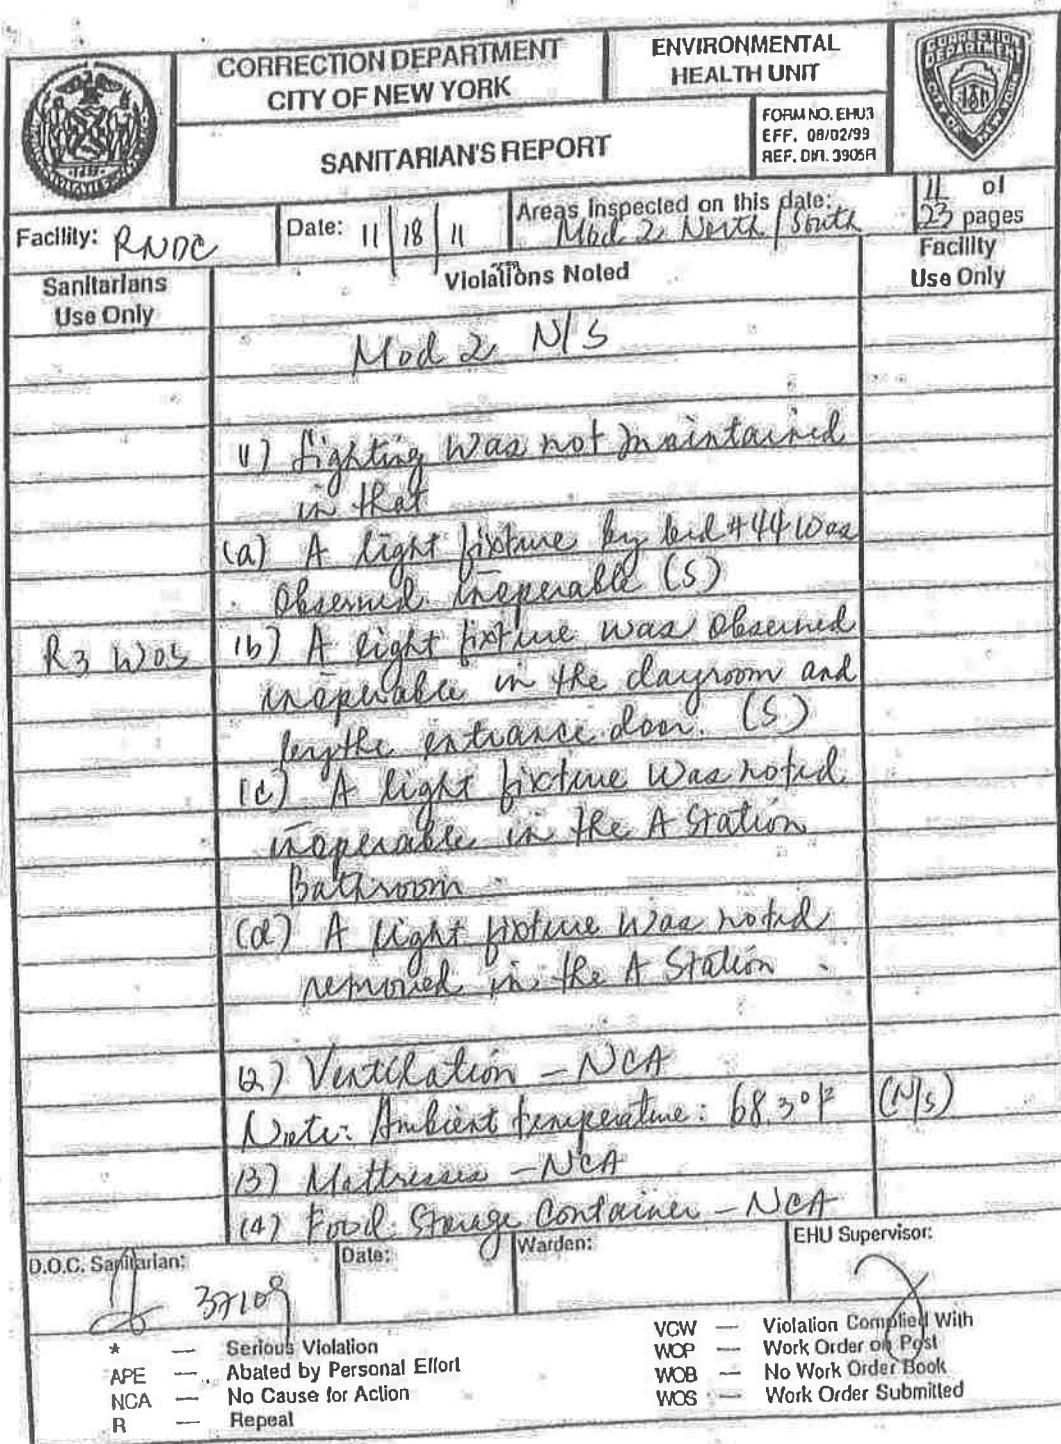 CORRECTION DEPARTMENT
CITY OF NEW YORK
ENVIRONMENTAL
HEALTH UNIT
SANITARIAN'S REPORT
FORM NO. EHU3
EFF. 08/02/99
REF. DIR. 3905R
CORRECTION
DEPARTMENT
CITY OF NEW YORK
Facility: RNDC
Date: 11 | 18 | 11
Areas Inspected on this date:
Mod 2 North / South
11 of
23 pages
Sanitarians
Use Only
Violations Noted
Facility
Use Only
Mod 2 N/S
11) Lighting was not maintained
in that
(a) A light fixture by bed #44 was
observed inoperable (S)
R3 WOS (b) A light fixture was observed
inoperable in the dayroom and
by the entrance door. (S)
(c) A light fixture was noted
inoperable in the A Station
Bathroom
(d) A light fixture was noted
removed in the A Station.
12) Ventilation - NCA
Note: Ambient temperature: 68.3°F (N/S)
13) Mattresses - NCA
14) Food Storage Container - NCA
D.O.C. Sanitarian:
Date:
Warden:
EHU Supervisor:
37109
* — Serious Violation
APE — Abated by Personal Effort
NCA — No Cause for Action
R — Repeat
VCW — Violation Complied With
WOP — Work Order on Post
WOB — No Work Order Book
WOS — Work Order Submitted